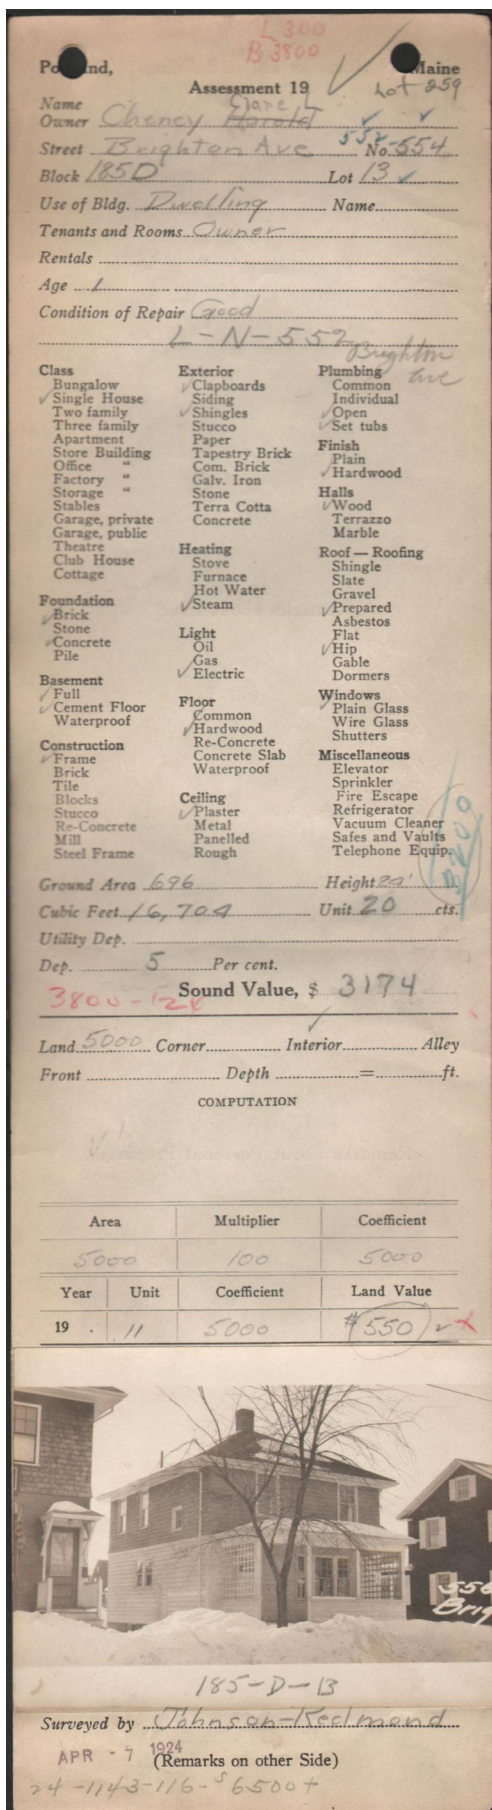 L 300
B 3800
Portland, Maine
Assessment 19
Lot 259
Name
Clare L
Owner Cheney Harold
552
Street Brighton Ave No. 554
Block 185D Lot 13
Use of Bldg. Dwelling Name
Tenants and Rooms Owner
Rentals
Age 1
Condition of Repair Good
L-N-552 Brighton Ave
Class
✓ Bungalow
✓ Single House
Two family
Three family
Apartment
Store Building
Office "
Factory "
Storage "
Stables
Garage, private
Garage, public
Theatre
Club House
Cottage
Foundation
✓ Brick
Stone
✓ Concrete
Pile
Basement
✓ Full
✓ Cement Floor
Waterproof
Construction
✓ Frame
Brick
Tile
Blocks
Stucco
Re-Concrete
Mill
Steel Frame
Exterior
✓ Clapboards
Siding
✓ Shingles
Stucco
Paper
Tapestry Brick
Com. Brick
Galv. Iron
Stone
Terra Cotta
Concrete
Heating
Stove
Furnace
Hot Water
✓ Steam
Light
Oil
✓ Gas
✓ Electric
Floor
Common
✓ Hardwood
Re-Concrete
Concrete Slab
Waterproof
Ceiling
✓ Plaster
Metal
Panelled
Rough
Plumbing
Common
Individual
✓ Open
✓ Set tubs
Finish
Plain
✓ Hardwood
Halls
✓ Wood
Terrazzo
Marble
Roof — Roofing
Shingle
Slate
Gravel
✓ Prepared
Asbestos
Flat
✓ Hip
Gable
Dormers
Windows
✓ Plain Glass
Wire Glass
Shutters
Miscellaneous
Elevator
Sprinkler
Fire Escape
Refrigerator
Vacuum Cleaner
Safes and Vaults
Telephone Equip.
Ground Area 696 Height 24' ft.
Cubic Feet 16,704 Unit 20 cts.
Utility Dep.
Dep. 5 Per cent.
Sound Value, $ 3174
3800 - 124
Land 5000 Corner Interior ✓ Alley
Front Depth = ft.
COMPUTATION
Area Multiplier Coefficient
5000 100 5000
Year Unit Coefficient Land Value
19 . 11 5000 $550 ✓ x
556
Brig
185-D-13
Surveyed by Johnson-Redmond
APR - 7 1924
(Remarks on other Side)
24-1143-116-$6500+